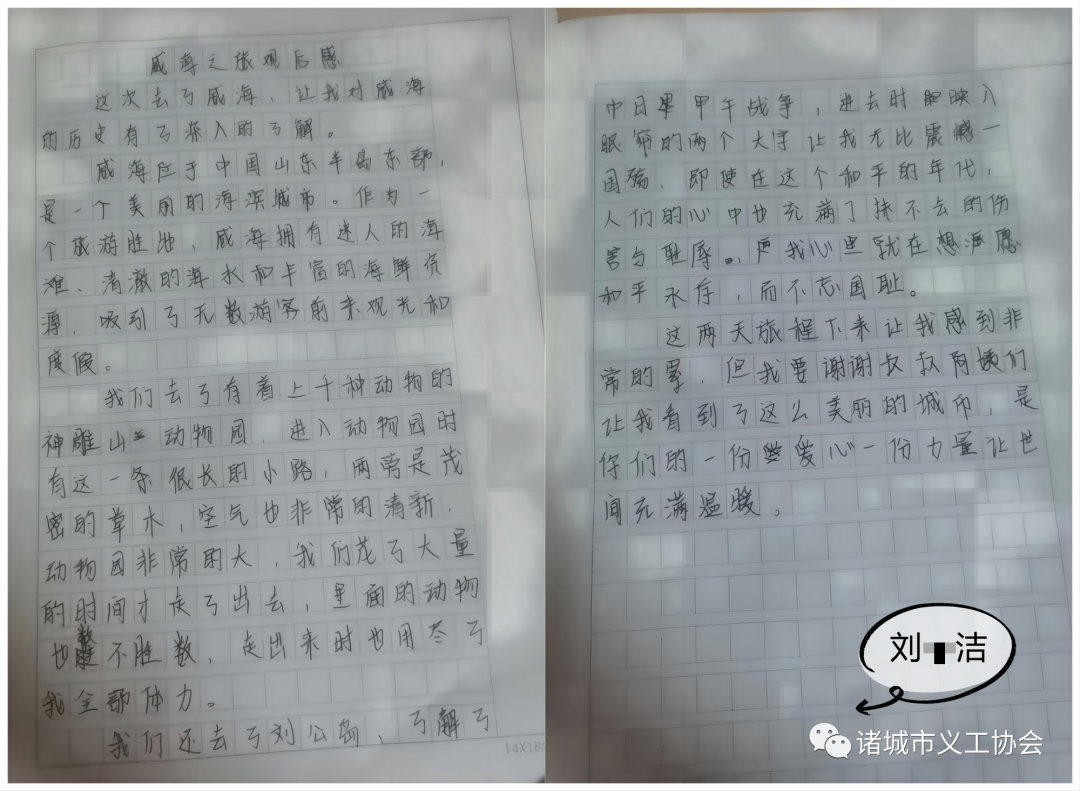 威海之旅观后感
这次去了威海，让我对威海
的历史有了深入的了解。
威海位于中国山东半岛东部，
是一个美丽的海滨城市。作为一
个旅游胜地，威海拥有迷人的海
滩、清澈的海水和丰富的海鲜资
源，吸引了无数游客前来观光和
度假。
我们去了有着上千种动物的
神雕山动物园，进入动物园时
有这一条很长的小路，两旁是茂
密的草木，空气也非常的清新，
动物园非常的大，我们花了大量
的时间才走了出去，里面的动物
也数不胜数，走出来时也用尽了
我全部体力。
我们还去了刘公岛，了解了
14X18
中日甲午战争，进去时映入
眼帘的两个大字让我无比震撼一
国殇，即使在这个和平的年代，
人们的心中也充满了抹不去的伤
害与耻辱。我心里就在想海愿
和平永存，而不忘国耻。
这两天旅程下来让我感到非
常的累，但我要谢谢叔叔阿姨们
让我看到了这么美丽的城市，是
你们的一份爱心一份力量让世
间充满温暖。
刘 洁
诸城市义工协会